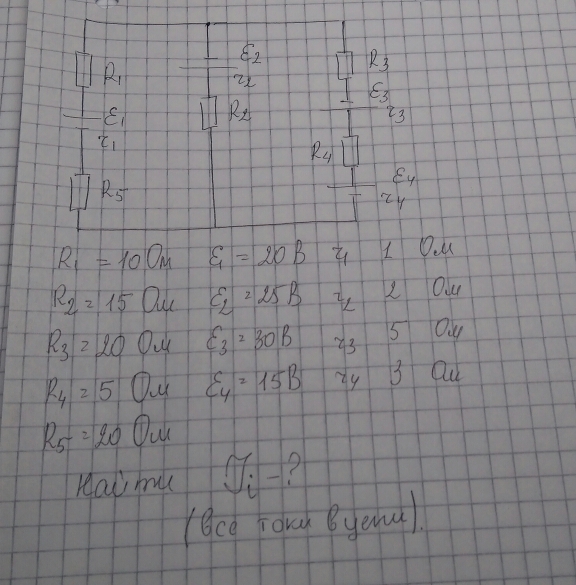 R1
ℰ1
r1
R5
ℰ2
r2
R2
R3
ℰ3
r3
R4
ℰ4
r4
R1 = 10 Ом ℰ1 = 20 В r1 1 Ом
R2 = 15 Ом ℰ2 = 25 В r2 2 Ом
R3 = 20 Ом ℰ3 = 30 В r3 5 Ом
R4 = 5 Ом ℰ4 = 15 В r4 3 Ом
R5 = 20 Ом
Найти Ji - ?
(все токи в цепи).